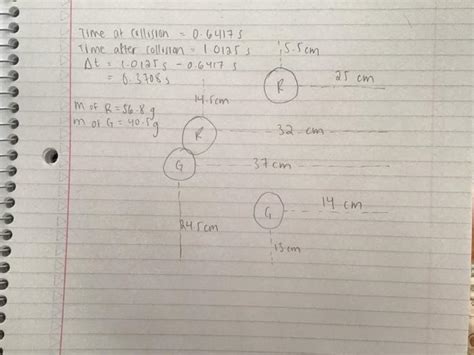 Time at collision = 0.6417 s
Time after collision = 1.0125 s
Δt = 1.0125 s - 0.6417 s
= 0.3708 s
m of R = 56.8 g
m of G = 40.5 g
5.5 cm
R
25 cm
14.5 cm
R
32 cm
G
37 cm
G
14 cm
24.5 cm
13 cm